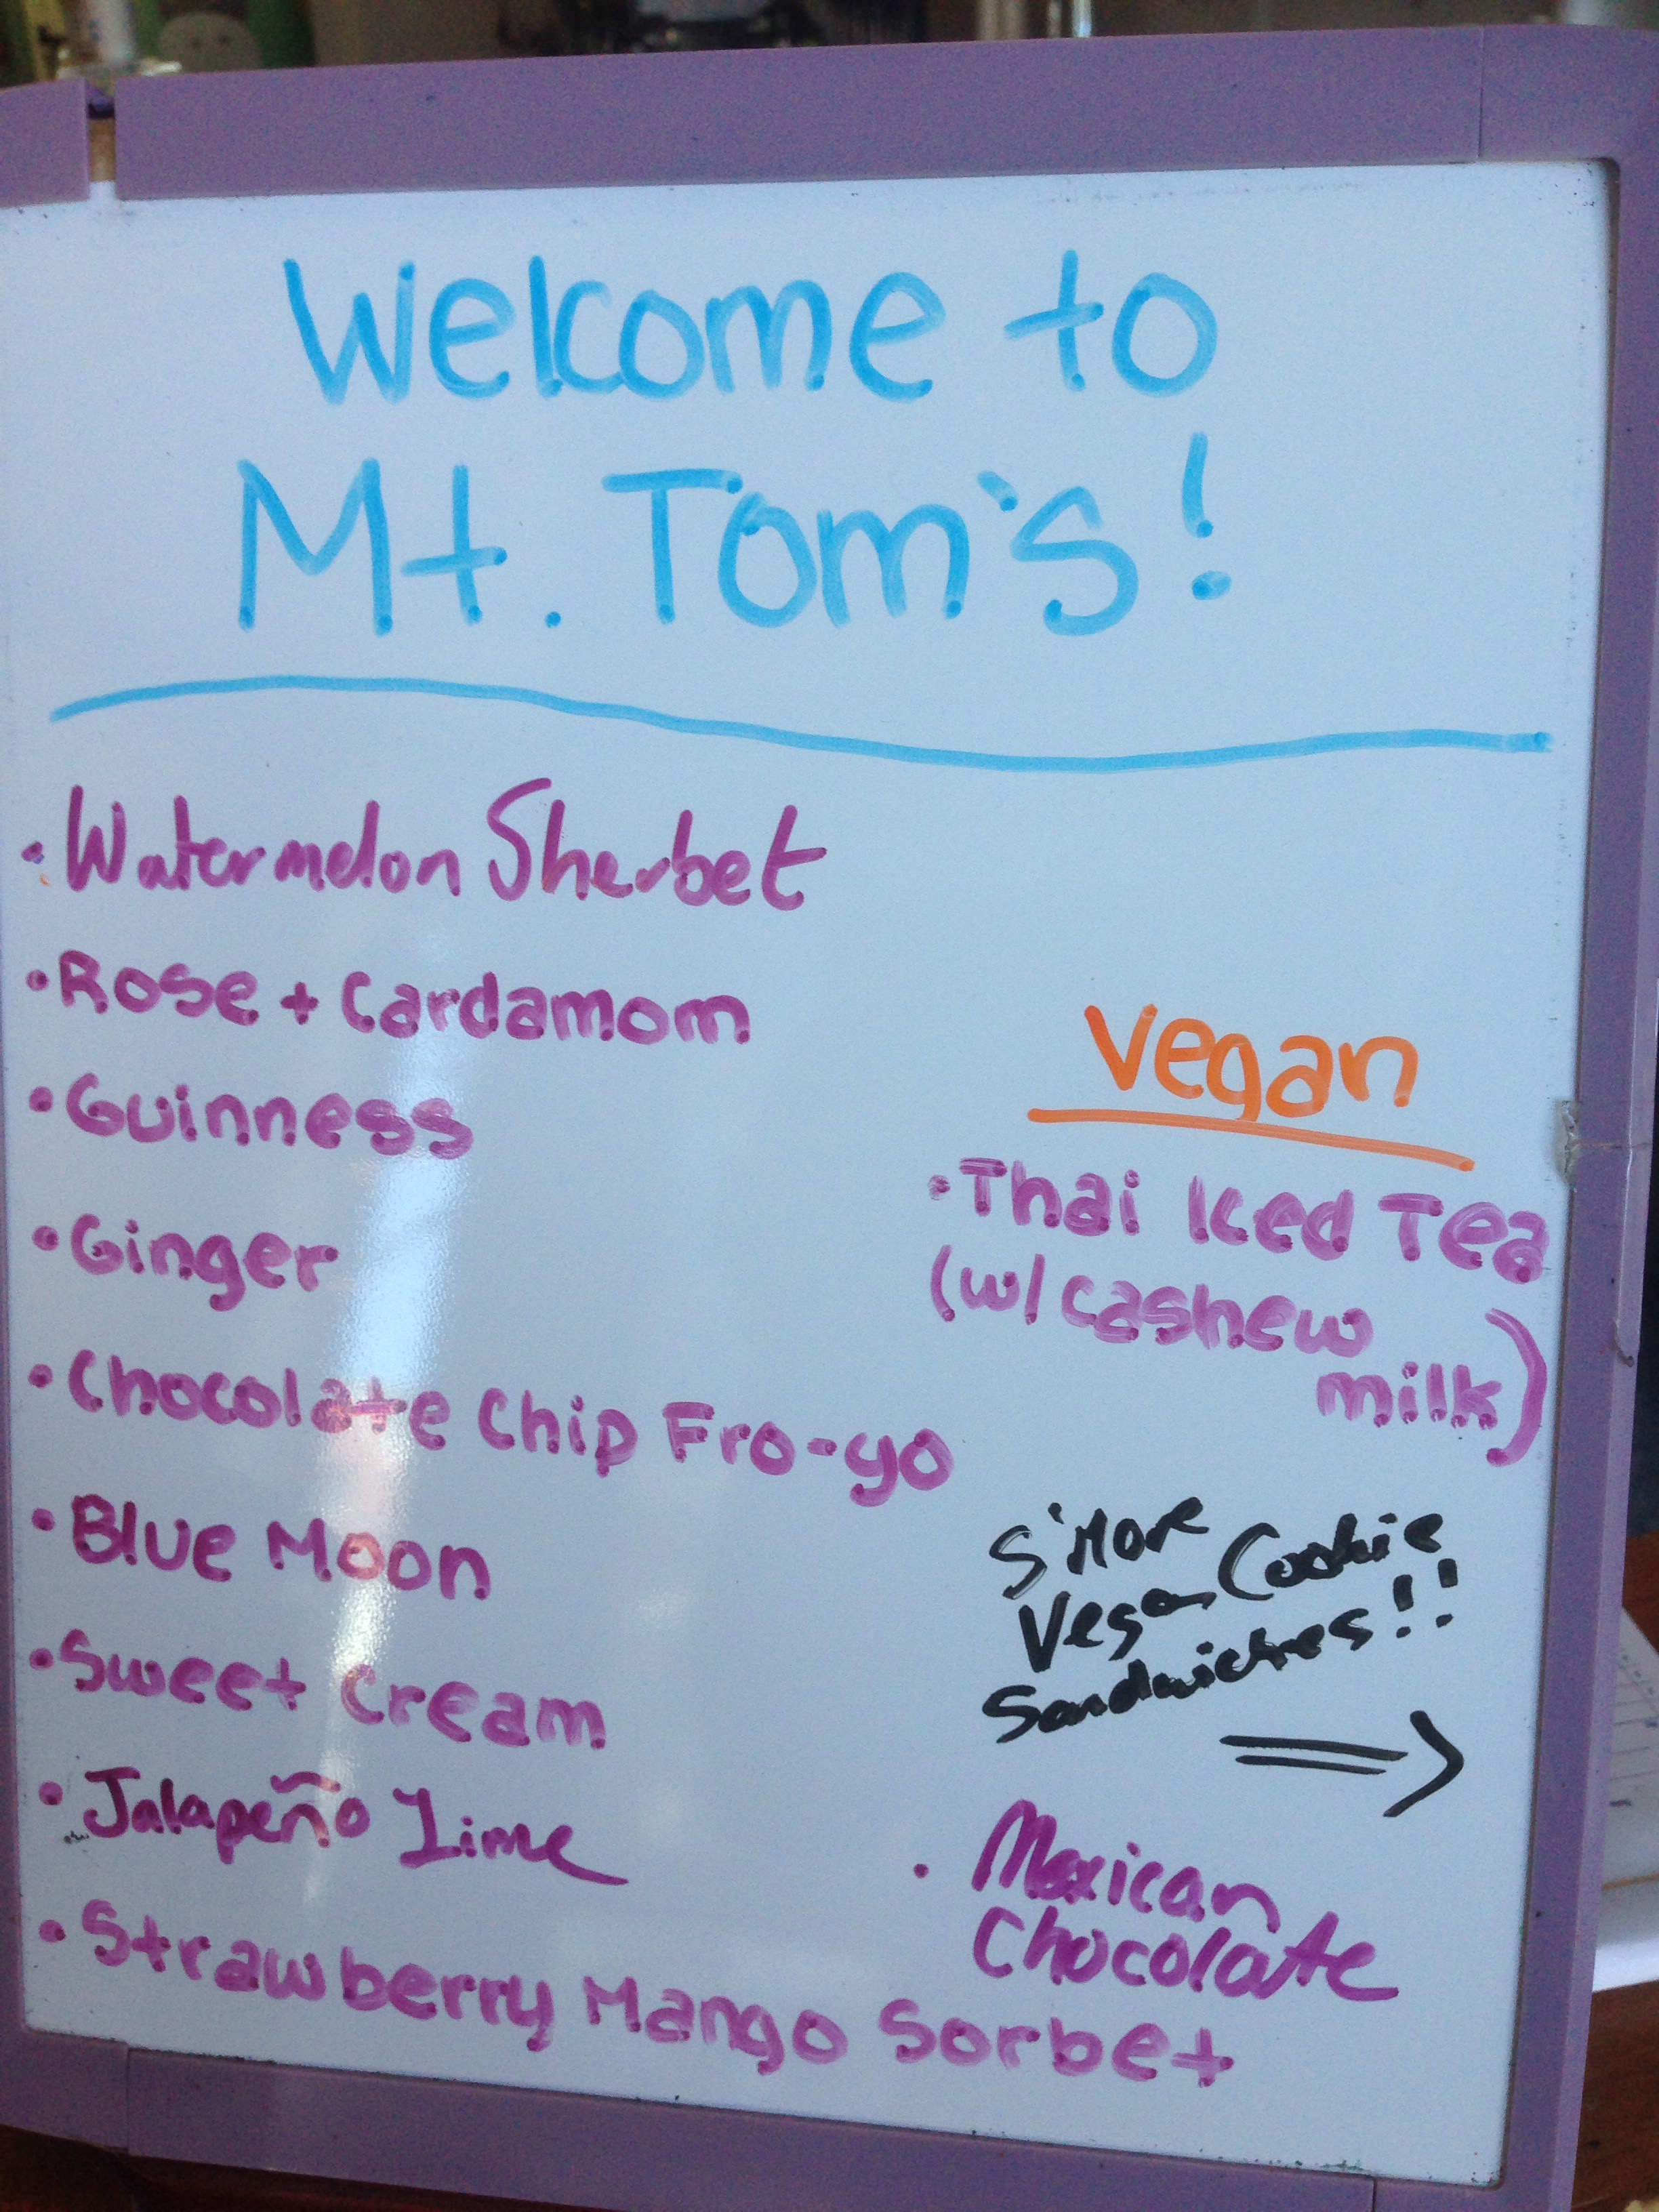 Welcome to
Mt. Tom's!
• Watermelon Sherbet
• Rose + Cardamom
• Guinness
• Ginger
• Chocolate Chip Fro-yo
• Blue Moon
• Sweet Cream
• Jalapeño Lime
• Strawberry Mango Sorbet
Vegan
• Thai Iced Tea
(w/ cashew
milk)
S'more
Vegan Cookie
Sandwiches!!
• Mexican
Chocolate